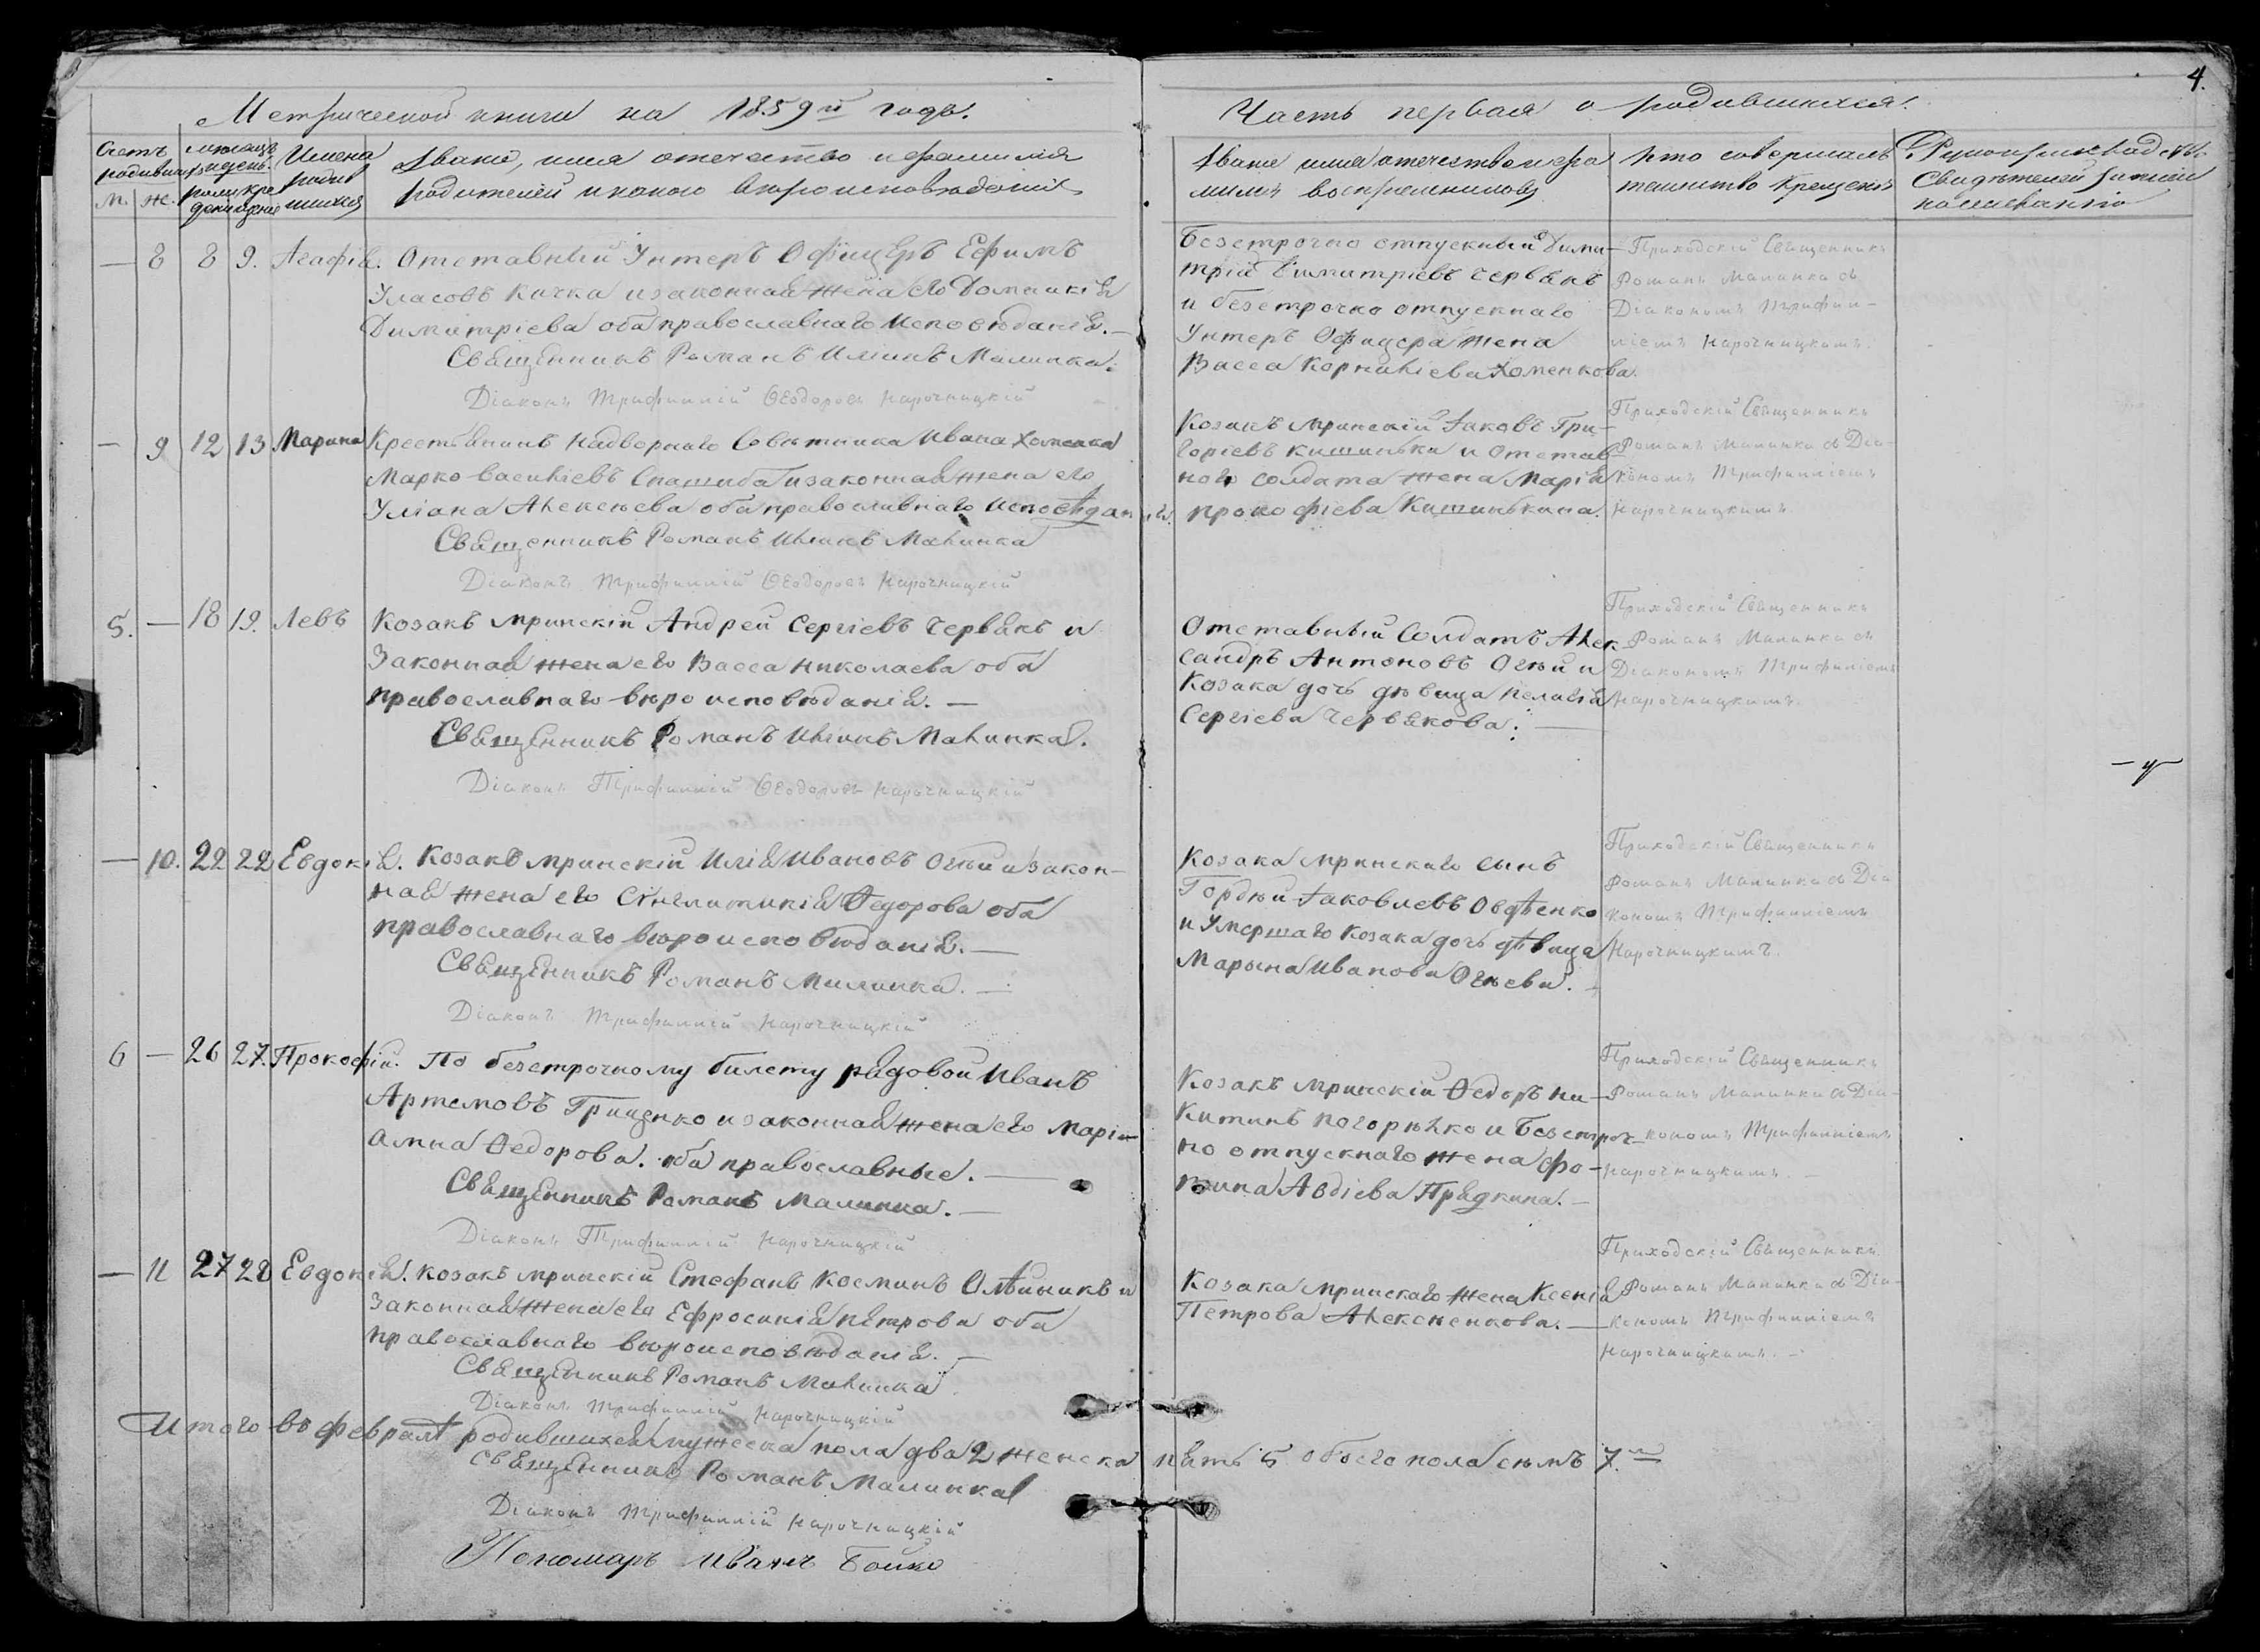 4.
Метрической книги на 1859й годъ.
Часть первая о родившихся.
Счетъ родившихся
М. Ж.
Мѣсяцъ и день
рожденія крещенія
Имена родившихся
Званіе, имя отечество и фамилія
родителей и какого вѣроисповѣданія
Званіе имя отечество и фа
милія воспріемниковъ
Кто совершалъ
таинство крещенія
Рукоприкладство
Свидѣтелей записи
по желанію
— 8 8 9. Агафія. Отставный Унтеръ Офицеръ Ефимъ
Уласовъ Качка и законная жена его Домникія
Димитріева оба православнаго исповѣданія. —
Священникъ Романъ Иліинъ Малинка.
Діаконъ Трифиллій Ѳеодоровъ Нарочницкій
Безсрочно отпускный Дими-
трій Димитріевъ Червякъ
и безсрочно отпускнаго
Унтеръ Офицера жена
Васса Корниліева Хоменкова.
Приходскій Священникъ
Романъ Малинка съ
Діакономъ Трифил-
ліемъ Нарочницкимъ.
— 9 12 13 Марина Крестьянинъ Надворнаго Совѣтника Ивана Хоменка
Марко Василіевъ Спашиба и законная жена его
Уліана Алексѣева оба православнаго исповѣданія.
Священникъ Романъ Иліинъ Малинка
Діаконъ Трифиллій Ѳеодоровъ Нарочницкій
Козакъ Мринскій Іаковъ Гри-
горіевъ Кишинька и Отстав-
наго солдата жена Марія
Прокофіева Кишинькина.
Приходскій Священникъ
Романъ Малинка съ Діа-
кономъ Трифилліемъ
Нарочницкимъ
5. — 18 19. Левъ Козакъ Мринскій Андрей Сергіевъ Червякъ и
Законная жена его Васса Николаева оба
православнаго вѣроисповѣданія. —
Священникъ Романъ Иліинъ Малинка.
Діаконъ Трифиллій Ѳеодоровъ Нарочницкій
Отставный Солдатъ Алек-
сандръ Антоновъ Огѣй и
Козака дочь дѣвица Пелагія
Сергіева Червякова. —
Приходскій Священникъ
Романъ Малинка съ
Діакономъ Трифиліемъ
Нарочницкимъ.
— 10. 22 22 Евдокія. Козакъ Мринскій Илія Ивановъ Огѣй и закон-
ная жена его Сѵнглитикія Ѳедорова оба
православнаго вѣроисповѣданія. —
Священникъ Романъ Малинка. —
Діаконъ Трифиллій Нарочницкій
Козака Мринскаго сынъ
Гордѣй Іаковлевъ Овдѣенко
и Умершаго Козака дочь дѣвица
Марына Иванова Огѣева.
Приходскій Священникъ
Романъ Малинка съ Діа
кономъ Трифилліемъ
Нарочницкимъ.
6 — 26 27. Прокофій. По безсрочному билету рядовой Иванъ
Артемовъ Гриценко и законная жена его Марі-
амна Ѳедорова. оба православные. —
Священникъ Романъ Малинка. —
Діаконъ Трифиллій Нарочницкій
Козакъ Мринскій Ѳедоръ Ни-
китинъ Погорѣлко и Безсроч-
но отпускнаго жена Фо-
тина Авдіева Прядкина. —
Приходскій Священникъ
Романъ Малинка съ Діа-
кономъ Трифилліемъ
Нарочницкимъ. —
— 11 27 28 Евдокія. Козакъ Мринскій Стефанъ Косминъ Олѣйникъ и
Законная жена его Ефросинія Петрова оба
православнаго вѣроисповѣданія. —
Священникъ Романъ Малинка
Діаконъ Трифиллій Нарочницкій
Козака Мринскаго жена Ксенія
Петрова Алексѣенкова. —
Приходскій Священникъ
Романъ Малинка съ Діа-
кономъ Трифилліемъ
Нарочницкимъ. —
Итого въ февралѣ родившихся мужеска пола два 2 женска пять 5 обоего пола семъ 7.
Священникъ Романъ Малинка
Діаконъ Трифиллій Нарочницкій
Пономарь Иванъ Бойко